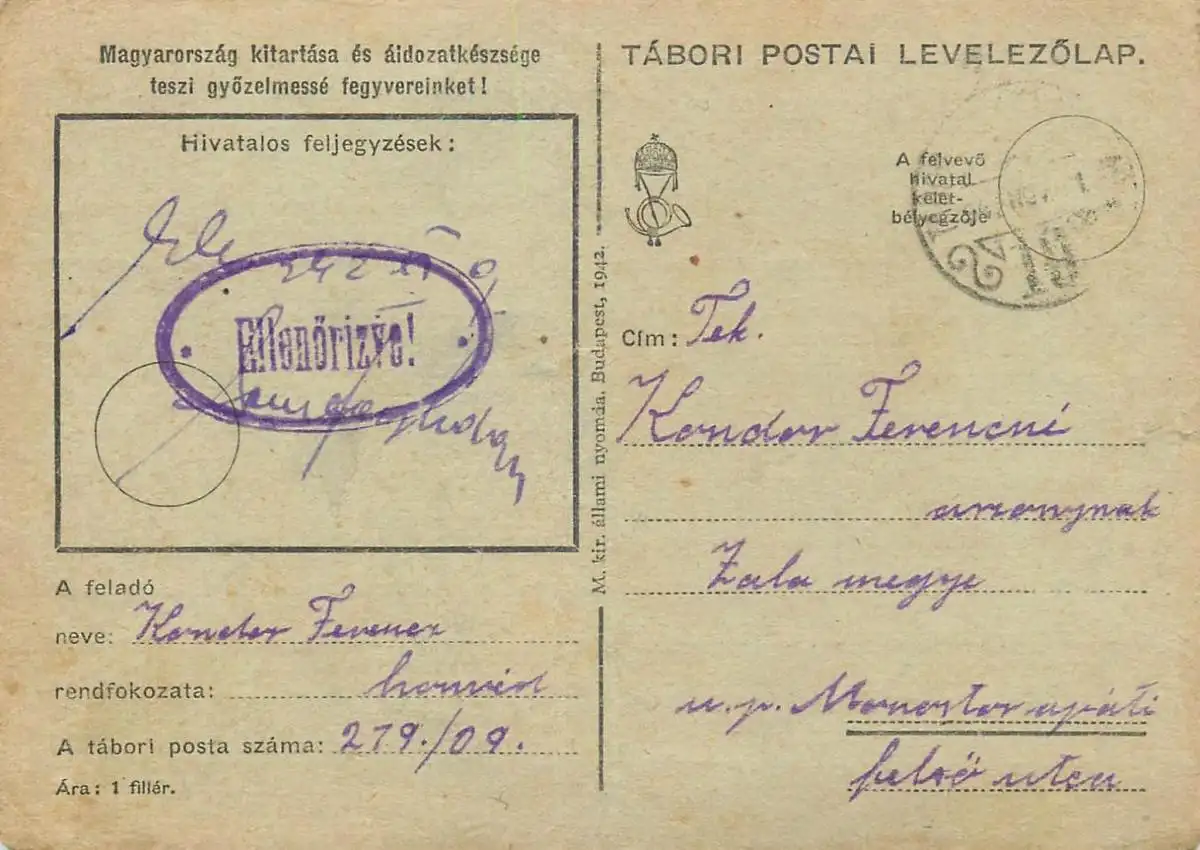 Magyarország kitartása és áldozatkészsége
teszi győzelmessé fegyvereinket!
Hivatalos feljegyzések:
Ellenőrizve!
A feladó
neve: Kondor Ferencz
rendfokozata: honvéd
A tábori posta száma: 279./09.
Ára: 1 fillér.
M. kir. állami nyomda, Budapest, 1942.
TÁBORI POSTAI LEVELEZŐLAP.
A felvevő
hivatal
kelet-
bélyegzője
Cím: Tek.
Kondor Ferencné
Zala megye
u.p. Monostor apáti
felső utca